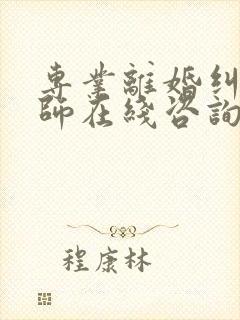 專業離婚糾
師在綫咨詢
程康林